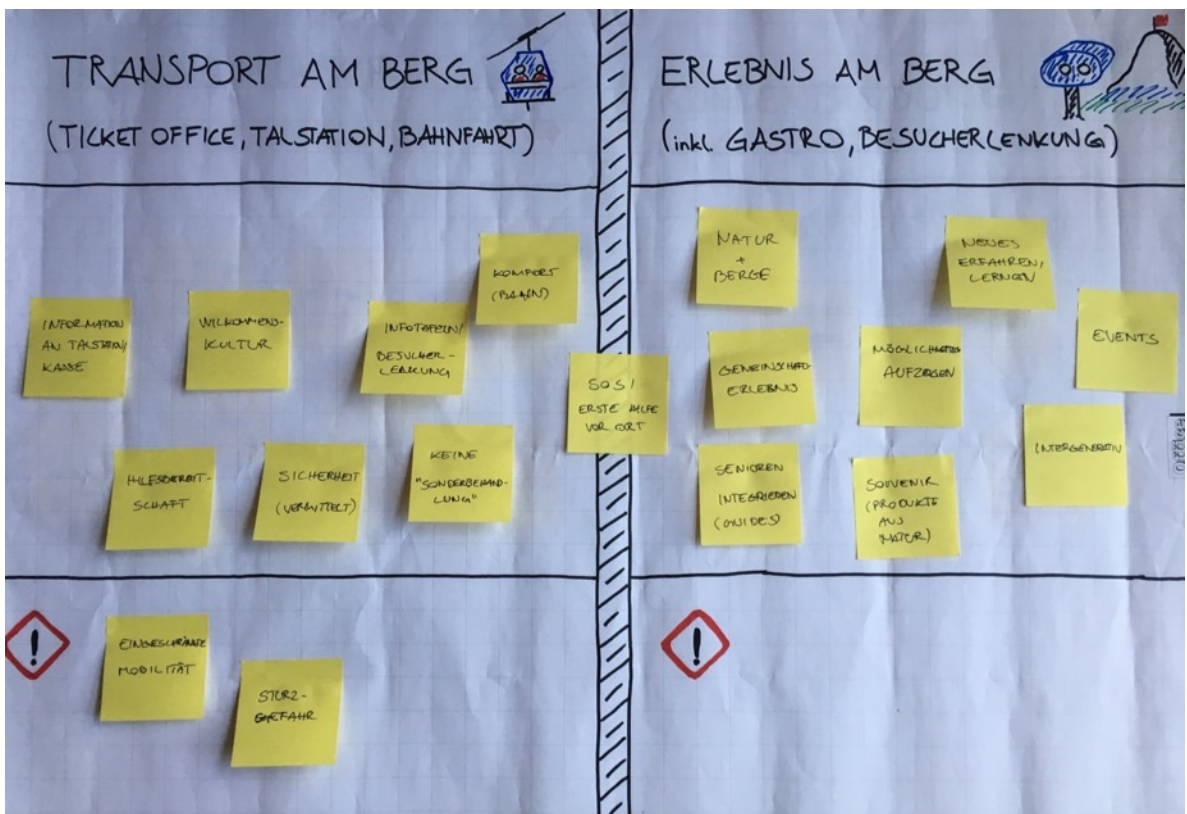 TRANSPORT AM BERG
(TICKET OFFICE, TALSTATION, BAHNFAHRT)
INFORMATION
AN TALSTATION/
KASSE
WILKOMMENS-
KULTUR
INFOTAFELN/
BESUCHER-
LENKUNG
KOMFORT
(BAHN)
HILFSBEREIT-
SCHAFT
SICHERHEIT
(VERMITTELT)
KEINE
"SONDERBEHAND-
LUNG"
SOS/
ERSTE HILFE
VOR ORT
!
EINGESCHRÄNKTE
MOBILITÄT
STURZ-
GEFAHR
ERLEBNIS AM BERG
(inkl. GASTRO, BESUCHERLENKUNG)
NATUR
+
BERGE
NEUES
ERFAHREN/
LERNEN
EVENTS
GEMEINSCHAFTS-
ERLEBNIS
MÖGLICHKEITEN
AUFZEIGEN
INTERGENERATIV
SENIOREN
INTEGRIEREN
(GUIDES)
SOUVENIR
(PRODUKTE
AUS
NATUR)
!